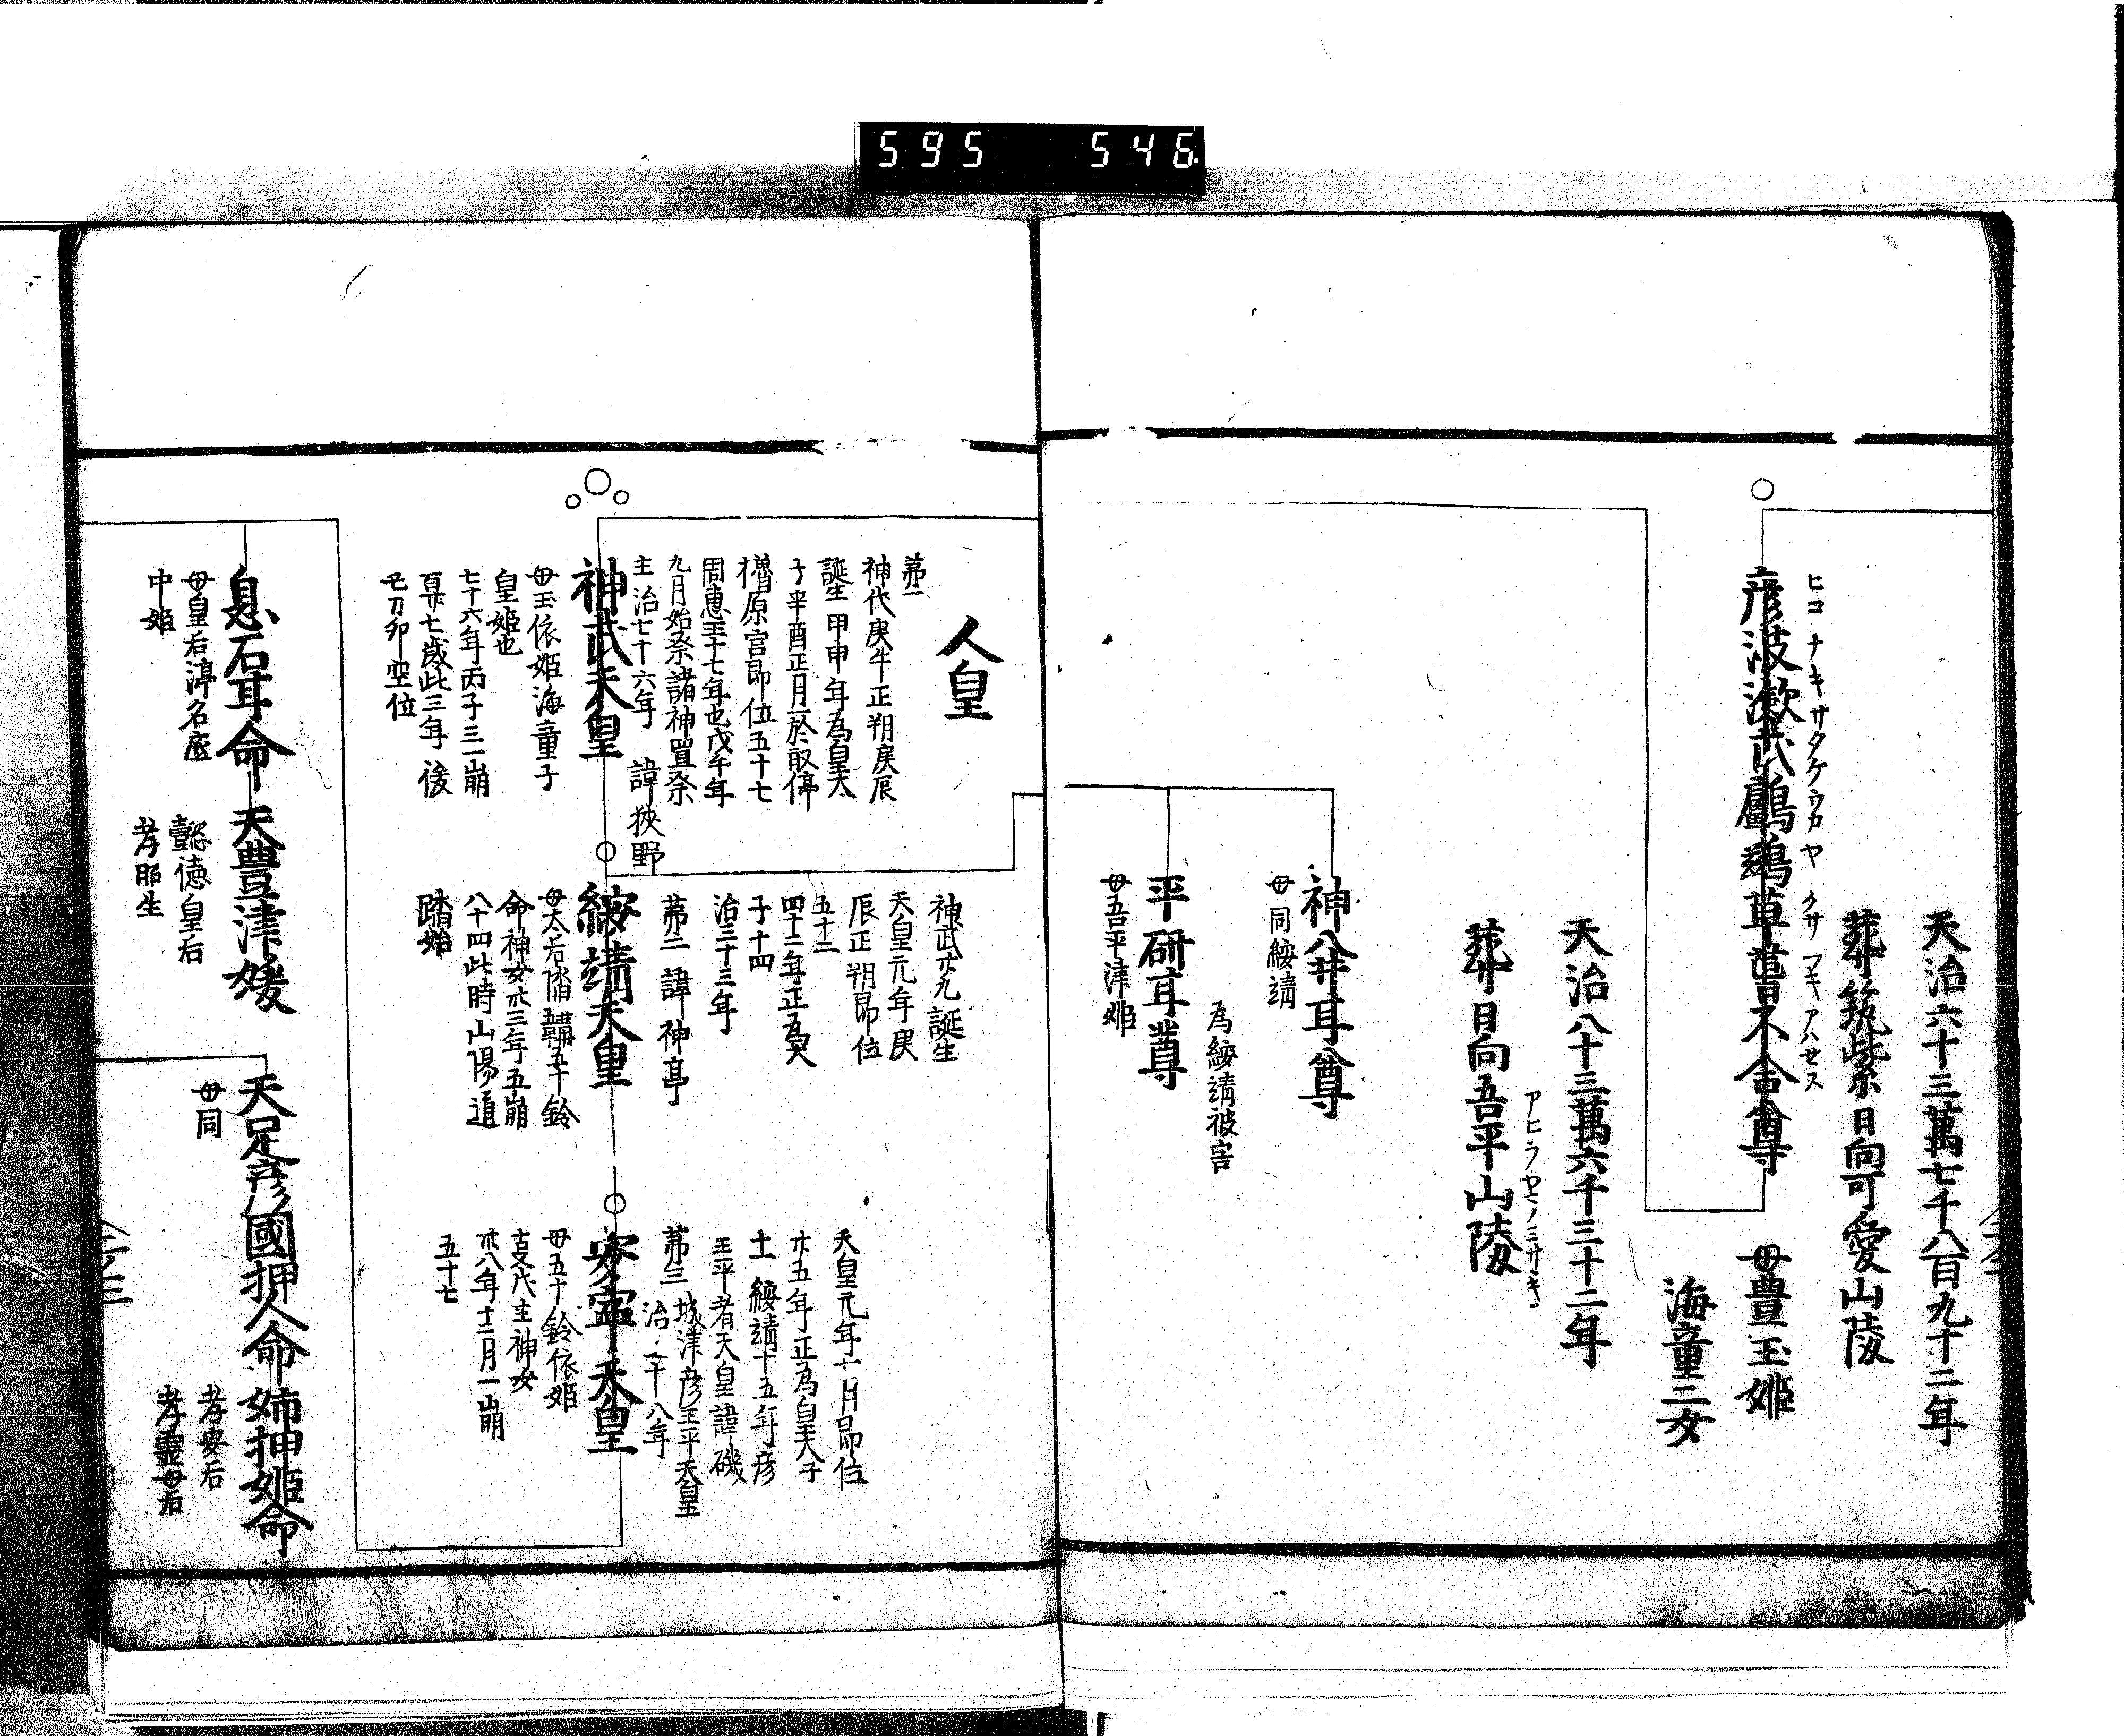 595 546
天治六十三萬七千八百九十二年
葬筑紫日向可愛山陵
ヒコナキサタケウカヤクサフキアハセス
彦波瀲武鸕鷀草葺不合尊
母豊玉姫
海童二女
天治八十三萬六千三十二年
アヒラヤマノミサキ
葬日向吾平山陵
神八井耳尊
母同綏靖
為綏靖被害
平研耳尊
母吾平津姫
人皇
第一
神代庚午正朔庚辰
誕生甲申年為皇太
子辛酉正月於
橿原宮即位五十七
周惠王十七年也戊午年
九月始祭諸神置祭
主治七十六年 諱狹野
神武天皇
母玉依姫海童子
皇姫也
七十六年丙子三一崩
百廿七歳此三年後
卯空位
神武廿九誕生
天皇元年庚
辰正朔即位
五十二
四十二年正為太
子十四
治三十三年
第二 諱神
綏靖天皇
母太后五十鈴
命神女卅三年五崩
八十四此時山陽道
踏始
天皇元年十一月即位
廿五年正為皇太子
十一 綏靖十五年彦
玉平者天皇諱磯
城津彦玉平天皇
第三 治三十八年
安寧天皇
母五十鈴依姫
事代主神女
卅八年十二月一崩
五十七
息石耳命
母皇后渟名底
中姫
天豊津媛
懿徳皇后
孝昭生
天足彦國押人命
母同
姉押姫命
孝安后
孝靈母后